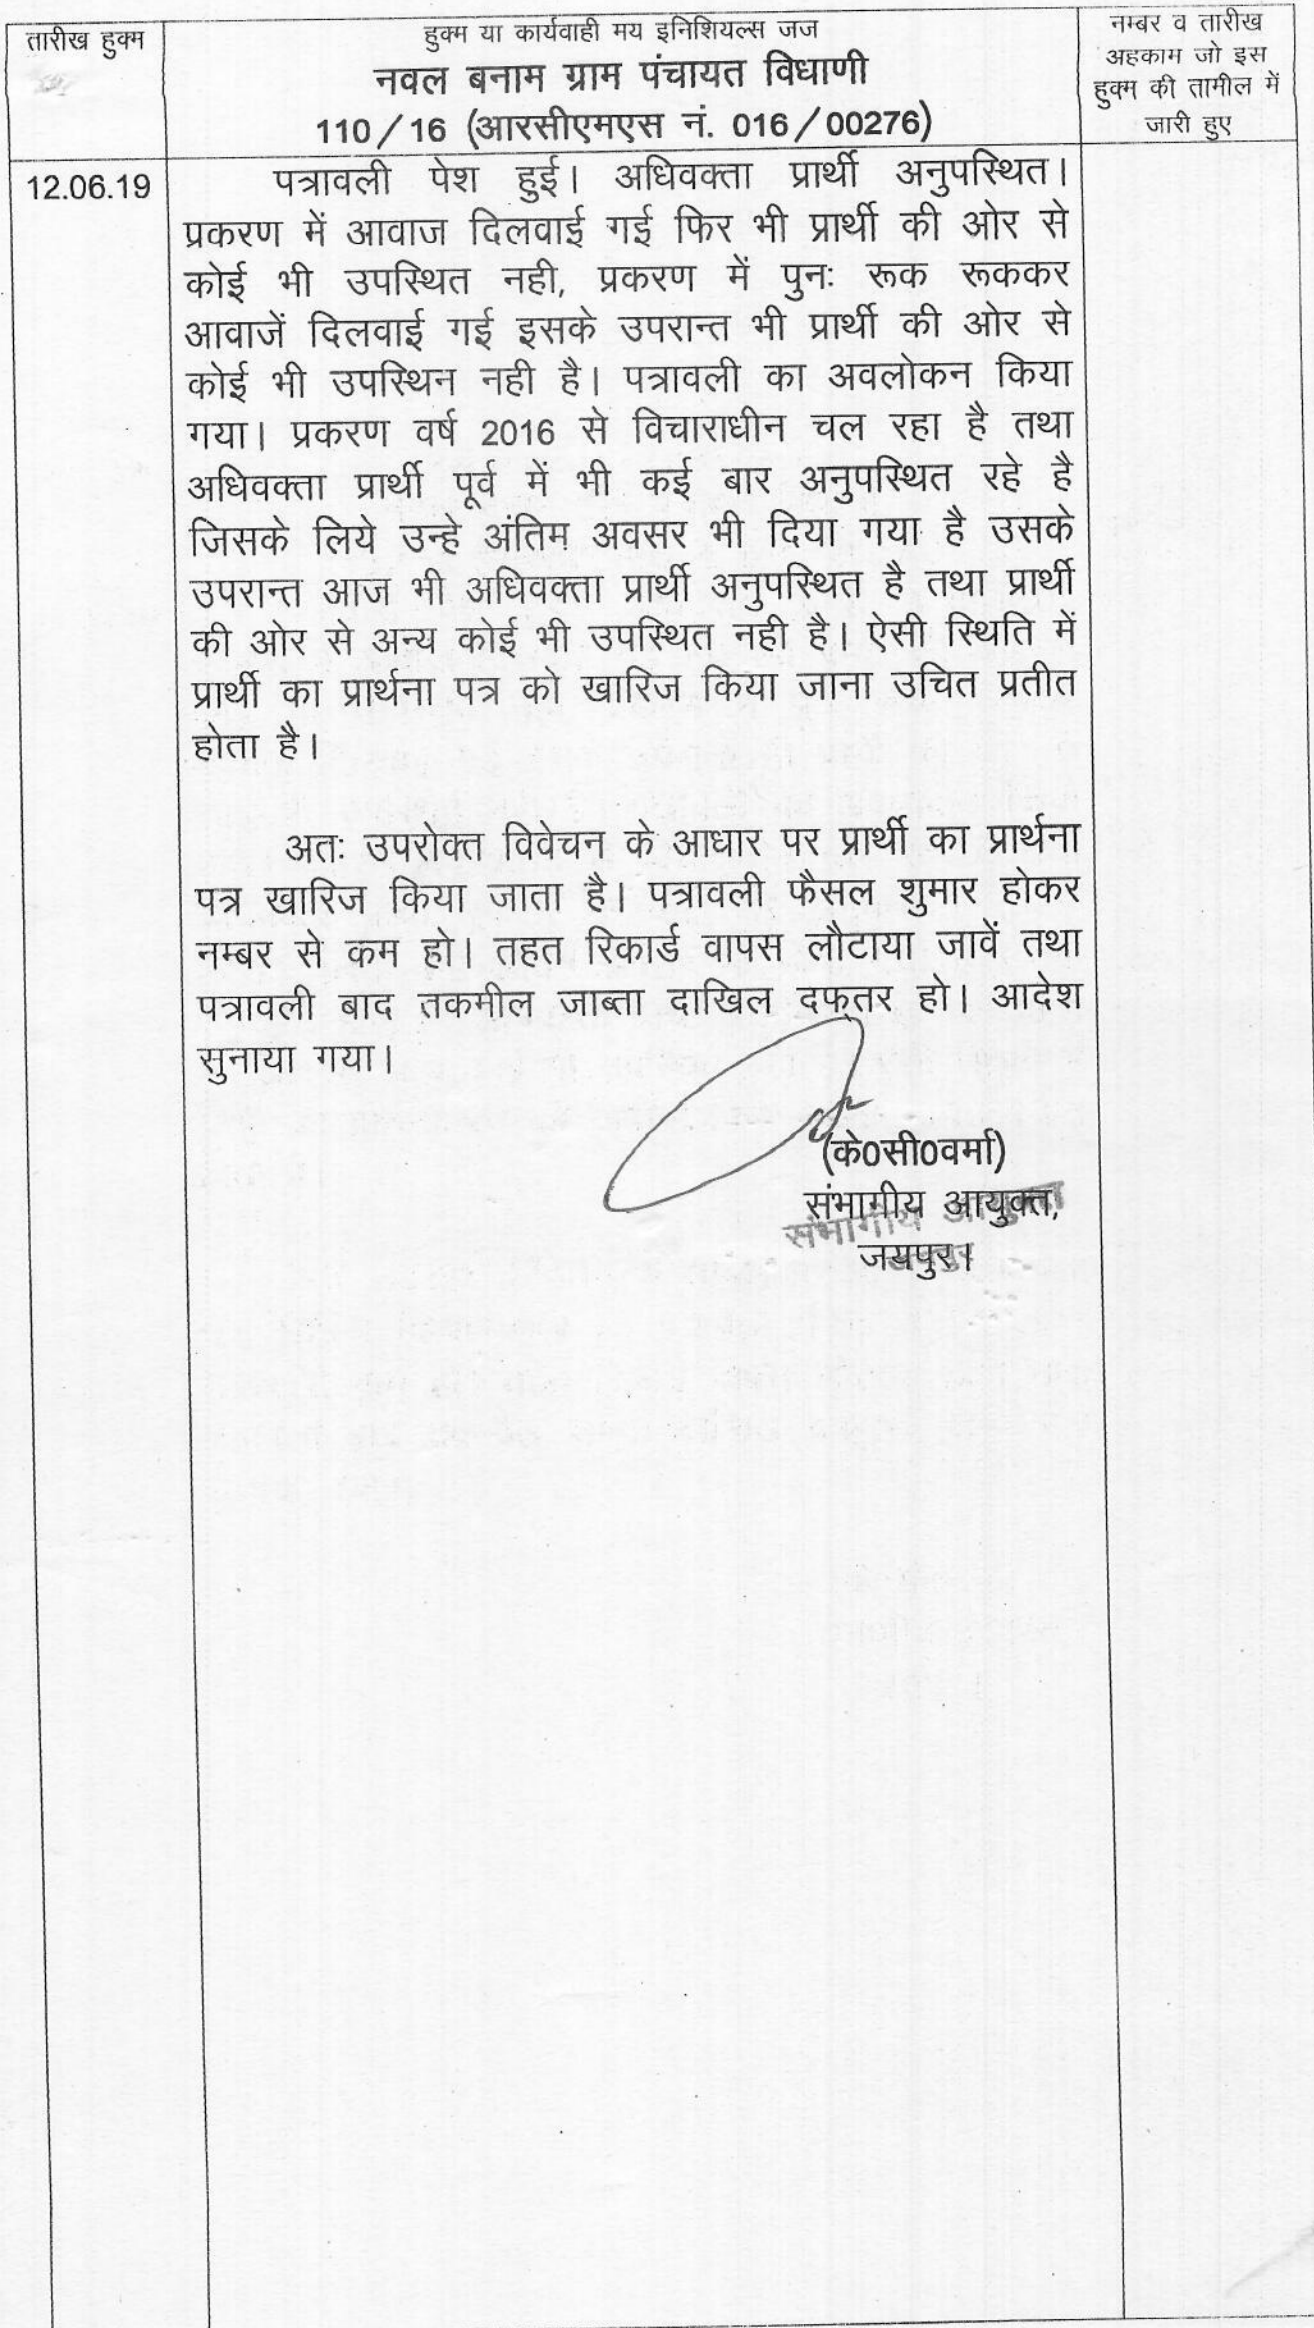 तारीख हुक्म
हुक्म या कार्यवाही मय इनिशियल्स जज
नवल बनाम ग्राम पंचायत विधाणी
110/16 (आरसीएमएस नं. 016/00276)
नम्बर व तारीख
अहकाम जो इस
हुक्म की तामील में
जारी हुए
12.06.19
पत्रावली पेश हुई। अधिवक्ता प्रार्थी अनुपस्थित।
प्रकरण में आवाज दिलवाई गई फिर भी प्रार्थी की ओर से
कोई भी उपस्थित नही, प्रकरण में पुनः रूक रूककर
आवाजें दिलवाई गई इसके उपरान्त भी प्रार्थी की ओर से
कोई भी उपस्थिन नही है। पत्रावली का अवलोकन किया
गया। प्रकरण वर्ष 2016 से विचाराधीन चल रहा है तथा
अधिवक्ता प्रार्थी पूर्व में भी कई बार अनुपस्थित रहे है
जिसके लिये उन्हे अंतिम अवसर भी दिया गया है उसके
उपरान्त आज भी अधिवक्ता प्रार्थी अनुपस्थित है तथा प्रार्थी
की ओर से अन्य कोई भी उपस्थित नही है। ऐसी स्थिति में
प्रार्थी का प्रार्थना पत्र को खारिज किया जाना उचित प्रतीत
होता है।
अतः उपरोक्त विवेचन के आधार पर प्रार्थी का प्रार्थना
पत्र खारिज किया जाता है। पत्रावली फैसल शुमार होकर
नम्बर से कम हो। तहत रिकार्ड वापस लौटाया जावें तथा
पत्रावली बाद तकमील जाब्ता दाखिल दफ्तर हो। आदेश
सुनाया गया।
(के0सी0वर्मा)
संभागीय आयुक्त,
संभागीय आयुक्त
जयपुर।